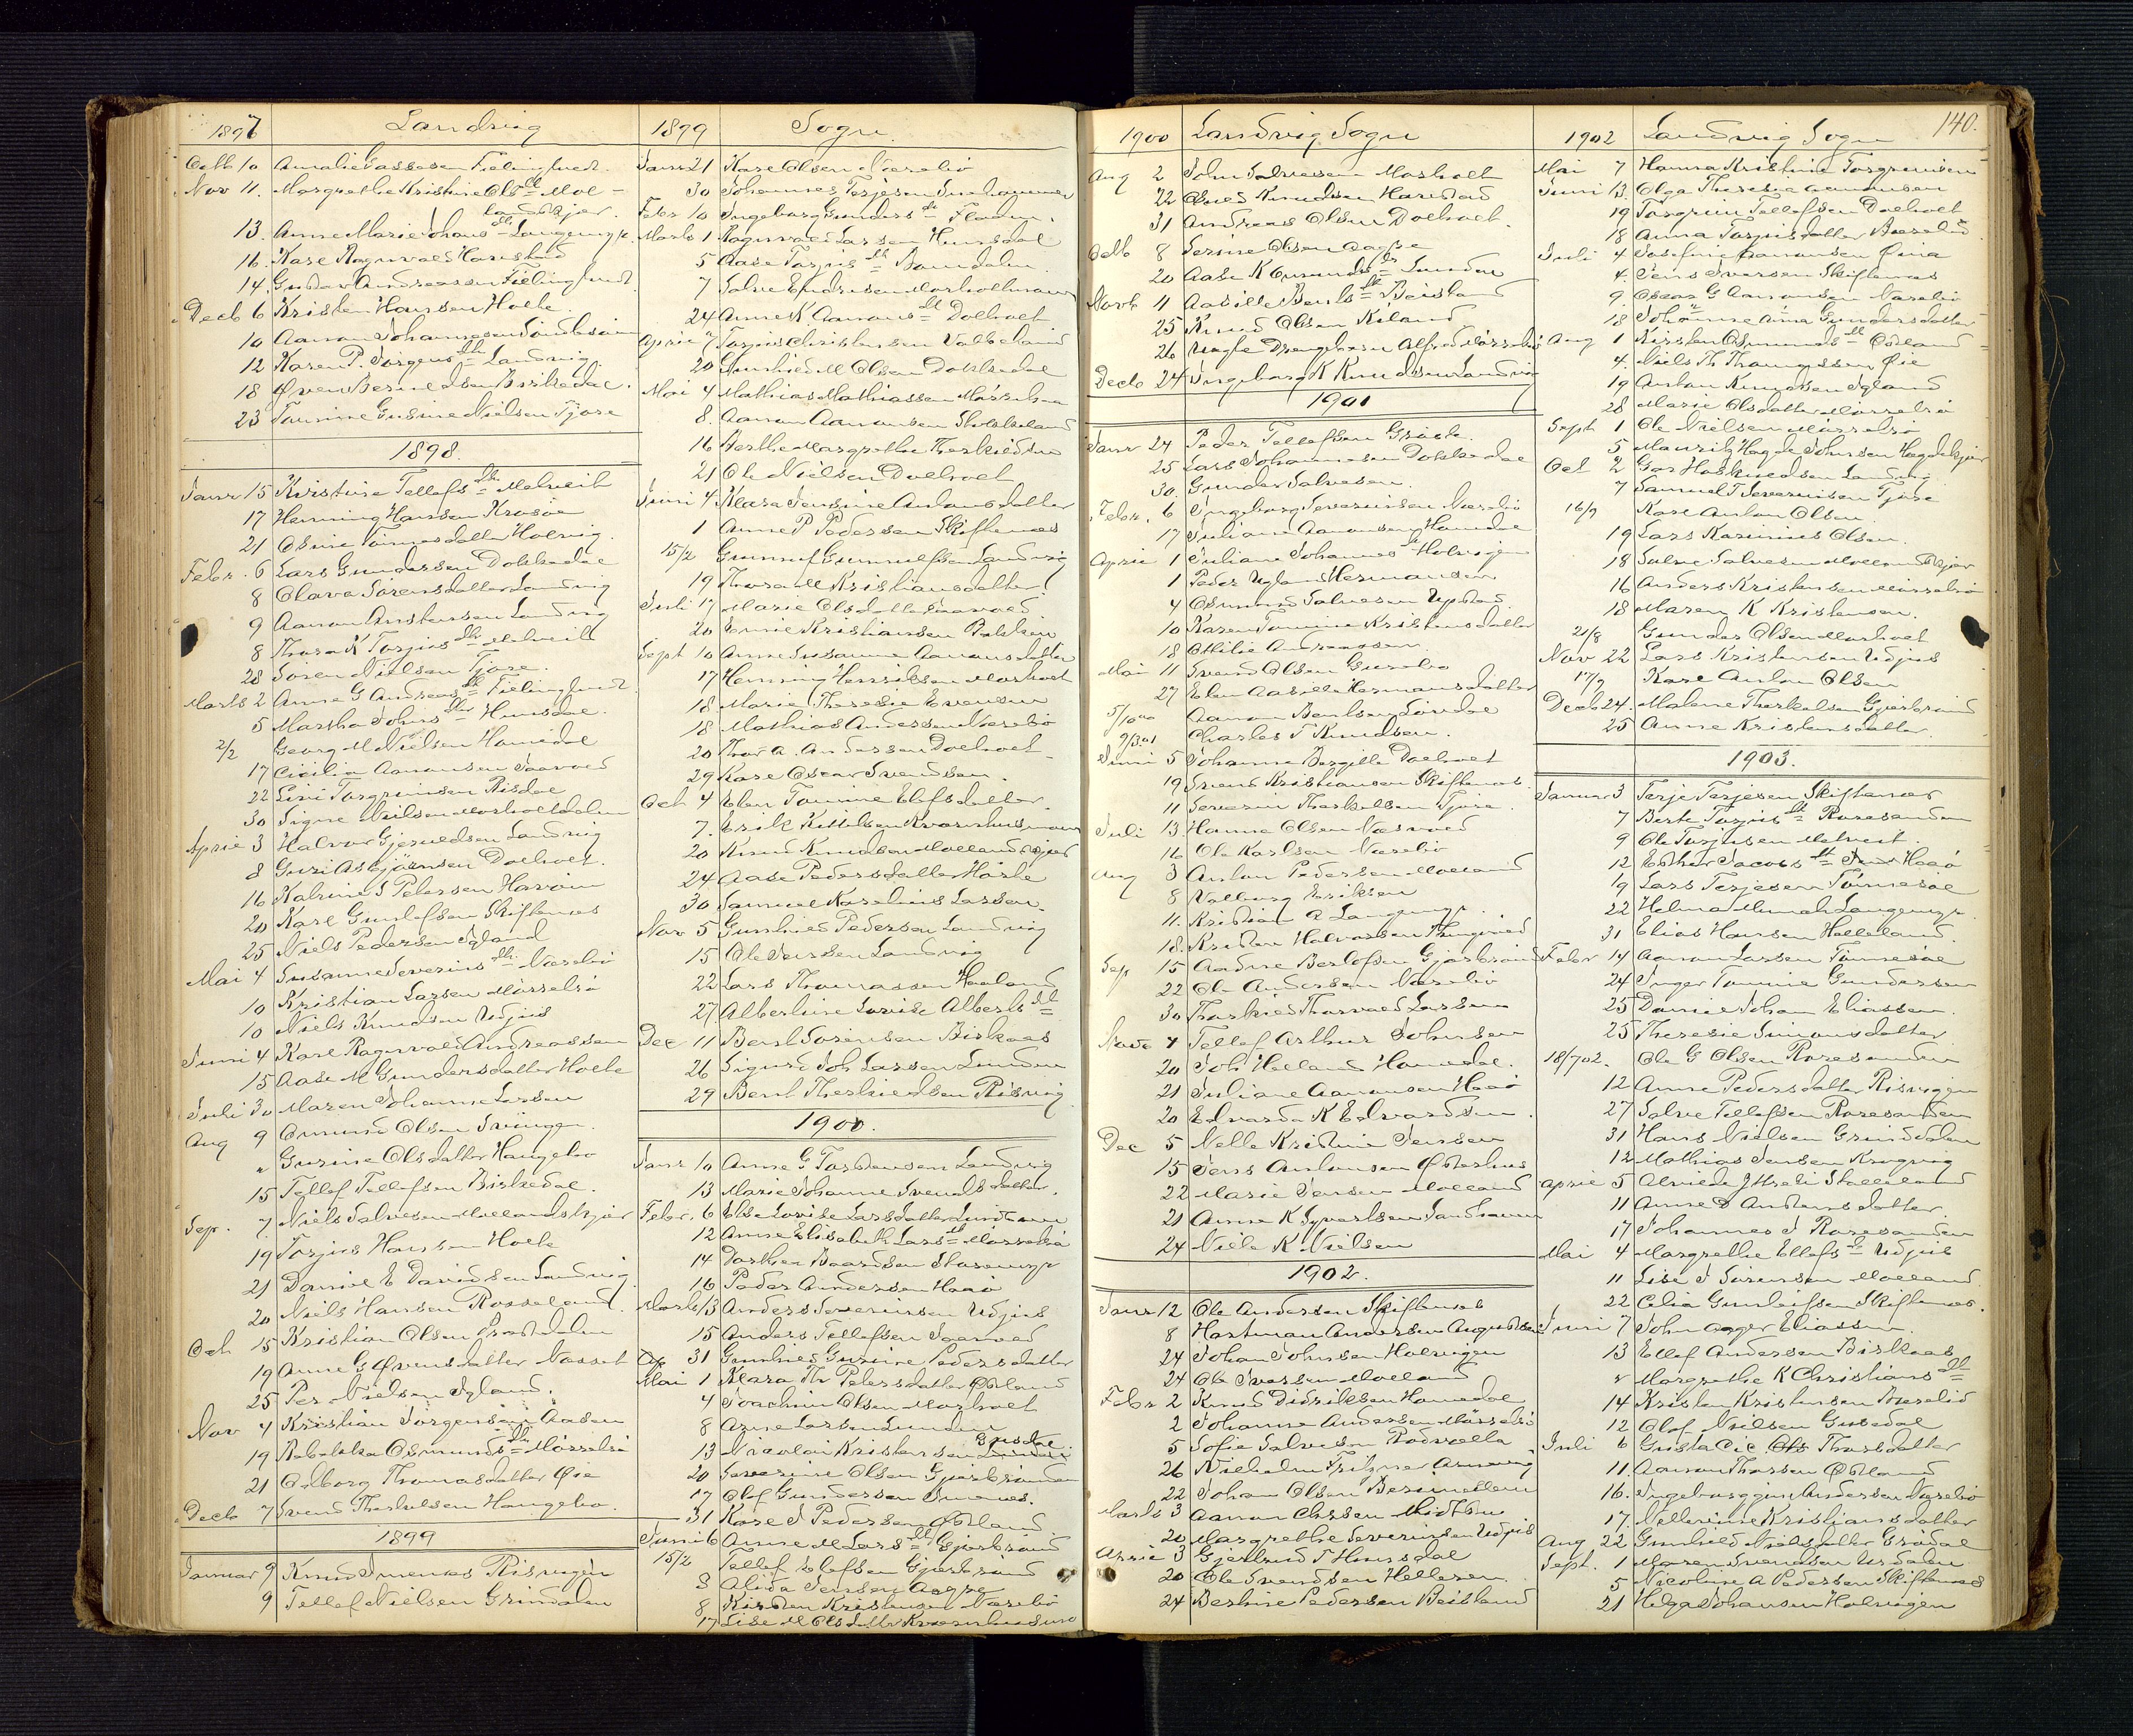 1897 Landvig
Octb 10 Amalie Lassesen Fielingsmdr.
Nov 11. Margrethe Kristine Ols dtr Mol-
landskjær.
13. Anne Marie Johans dtr Langemyr
16. Karl Ragnvald Harestad
14. Gustav Andreassen Fielingsmdr.
Decb 6 Kristen Hansen Holte
10 Aanon Johannesen
12 Karen P. Jørgens dtr Landvig
18 Øven Berntsen Birkedal.
23 Tomine Gusine Nielsen Tjore
1898.
Janr 15 Kristine Tellefs dtr Molveit
17 Henning Hansen Krosøe
21 Osuie Tønnesdatter Holvig.
Febr. 6 Lars Gundersen Dokkedal
8 Olava Sørensdatter Landvig
9 Aanon Anstensen Landvig
8 Thora K Torjus dtr Molveit
28 Søren Nielsen Tjore.
Marts 2 Anne G Andreas dtr Fielingsmdr.
5 Martha Johns dtr Hunsdal.
2/2 Georg M Nielsen Homdal
17 Cicilia Aanonsen Saavad
22 Lini Torgrimsen Risdal
30 Signe Nielsen Morholtdalen
April 3 Halvor Gjeruldsen Landvig
8 Guri Asbjørnsen Dolholt.
16 Katrine S Petersen Havøen
20 Karl Gunlefsen Skiftenes
25 Niels Pedersen Igland
Mai 4 Susanne Severins dtr Næsebø
10 Kristian Larsen Mørselsø
10 Niels Knudsen Udjus
Juni 4 Karl Ragnvald Andreassen
15 Aase M Gundersdatter Holte
Juli 30 Maren Johanne Larsen
Aug 9 Omund Olsen Svingen.
" Gusine Olsdatter Haugebo
15 Tellef Tellefsen Birkedal.
Sep. 7 Niels Salvesen Mollandskjær
19 Torjus Hansen Holte
21 Daniel E Davidsen Landvig
20 Niels Hansen Rosseland.
Oct 15 Kristian Olsen Prestdalen
19 Anne G Øvensdatter Nosset
25 Per Nielsen Igland.
Nov 4 Kristian Jørgensen Aasen
19 Rebekka Osmunds dtr Mørselsø
21 Valborg Thomasdatter Øie
Decb 7 Svend Therkelsen Haugebo.
1899
Januar 9 Knud Smenes Risvigen
9 Tellef Nielsen Grindalen
1899 Sogn.
Janr 21 Karl Olsen Næsebø
30 Johannes Terjesen Indhammer
Febr 10 Ingeborg Gunders dtr Floden.
Marts 1 Ragnvald Larsen Hunsdal
5 Aase Torjus dtr Bamdalen
7 Salve Endresen Morholtmoen
24 Anne K. Aanons dtr Dolholt
April 7 Torjus Christensen Valbeland
20 Gunhild M Olsen Dokkedal
Mai 4 Mathias Mathiassen Mørselsø
8. Aanon Aanonsen Stokkeland
16 Berthe Margrethe Therkildsen
21 Ole Nielsen Dolholt
Juni 4 Klara Jensine Antonsdatter
1 Anne P Pedersen Skiftenes
15/2 Gunnuf Gunnulfsen Landvig
19 Thora M Kristiansdatter
Juli 17 Marie Olsdatter Saavad
20 Emil Kristiansen
Sept 10 Anne Susanne Aanonsdatter
17 Henning Henriksen Morholt
18 Marie Theresie Evensen
18 Mathias Andersen Næsebø
20 Thor A. Andersen Dolholt
29 Karl Oscar Svendsen.
Oct 4 Elen Tomine Elefsdatter.
7. Erik Kittelsen Kvarnhusmoen
20 Knud Knudsen Mollandskjær
24 Aase Pedersdatter Hørte
30 Samuel Karelius Larsen.
Nov 5 Gunhild Pedersen Landvig
15 Ole Jensen Landvig
22 Lars Thomassen Haaland
27 Albertine Lovise Alberts dtr
Dec 11 Bent Sørensen Birkaas
26 Sigurd Joh Larsen Lunden
29 Bent Therkildsen Risvig
1900.
Janr 10 Anne G Torstensen Landvig
13 Marie Johanne Svendsdatter.
Febr. 6 Else Lovise Larsdatter Lundmoen
12 Anne Elisabeth Lars dtr Mørselsø
14 Dorthea Baardsen Storemyr
16 Peder Andersen Haaø
Marts 13 Anders Severinsen Udjus
15 Anders Tellefsen Saavad
Ap 31 Gunhild Gusine Pedersdatter
Mai 1 Klara Th Petersdatter Østland
4 Joachim Olsen Morholt
8 Arne Larsen Lunden
13 Nicolai Kristensen Grosdal
20 Severine Olsen Gjærbranden
17 Olof Gundersen Smenes.
31 Karl S Pedersen Østland
Juni 6 Anne M Lars dtr Gjærbrand
15/2 Tellef Elefsen Gjærbrand
8 Alida Jensen Aagre
8 Kirsten Kristensen Næsebø
17 Lise M Olsdatter Kvarnhusmo
1900 Landvig Sogn
Aug 2 John Salvesen Morholt
22 Osuld Knudsen Harestad
31 Andreas Olsen Dolholt.
Octb 8 Serine Olsen Aagre
20 Aase K Omunds dtr Lunden
Novb 11 Aasille Bents dtr Beisland
25 Knud Olsen Kiland
26 Uægte Drengebarn Alfred Mørselsø
Decb 24 Ingeborg K Knudsen Landvig
1901
Janr 24 Peder Tellefsen Groste.
25 Lars Johannesen Dokkedal
30. Gunder Salvesen.
Febr. 6 Ingeborg Severinsen Næsebø
17 Juliane Aanonsen Homdal
April 1 Juliane Johannes dtr Holvigen
1 Peder Ugland Hermansen
4 Osmund Salvesen Opstad.
10 Karen Tomine Kristensdatter
18 Othilie Andreassen.
Mai 11 Svend Olsen Gurebo
27 Elen Aasille Hermansdatter
5/10 00 Aanon Bentsen Sørdal
9/3 01 Charles T Knudsen.
Juni 5 Johanne Bergitte Dolholt
19 Svend Kristiansen Skiftenes
11 Severin Therkelsen Tjore.
Juli 13 Hanna Olsen Næsvad
16 Ole Karlsen Næsebø
Aug 3 Anton Pedersen Molland
8 Valborg Eriksen
11. Kristian A Langemyr.
18. Kristen Halvorsen Ringvad
Sep 15 Aadne Berlofsen Gjærbrand
22 Ole Andersen Næsebø
30 Thorkild Thorvald Larsen
Novb 4 Tellef Arthur Johnsen
20 Joh Helland Homdal.
21 Juliane Aanonsen Haaø
20 Edvarda K Edvardsen.
Dec 5 Nelle Kristine Jensen
15 Jens Antonsen Østerhus
22 Marie Jensen Molland
21 Anne K Syvertsen Sandhaven
24 Niels K Nielsen
1902.
Janr 12 Ole Andersen Skiftenes
8 Hartman Andersen Augustsen
24 Johan Johnsen Holvigen
24 Ole Iversen Molland
Febr 2 Knud Didriksen Homdal
2 Johanne Andersen Mørselsø
5 Sofie Salvesen Rodvælla
26 Nilhelm Fritzner Arneveg
22 Johan Olsen Besemellem
Marts 3 Aanon Chrsen Midtbøe
20 Margrethe Severinsen Udjus
April 3 Gjertrud T Hunsdal
20 Ole Svendsen Helleren.
24 Bertine Pedersen Beisland
140.
1902 Landvig Sogn
Mai 7 Hanna Kristine Torgrimsen
Juni 13. Olga Theresie Aanonsen
19 Torgrim Tellefsen Dolholt
18 Anna Torjusdatter Bæselid
Juli 4 Josefine Aanonsen Øina
4. Jens Iversen Skiftenes
9. Oscar G Aanonsen Næsebø
18 Johanne Anna Gundersdatter
Aug 1 Kirsten Osmunds dtr Østland
4. Niels Th Thomassen Øie
19 Anton Knudsen Igland
28 Marie Olsdatter Mørselsø
Sept 1 Ole Nielsen Mørselsø
5 Mauritz Hagde Johnsen Hagdekjær
Oct 2 Gar Halkildsen Landvig
7 Samuel T Severinsen Tjore
16/9 Karl Anton Olsen.
19 Lars Karinius Olsen.
18 Salve Salvesen Mollandskjær
16 Anders Kristensen Mørselsø
18 Maren K Kristensen.
21/8 Gunder Olsen Morholt
Nov 22 Lars Kristensen Udjus
17/9 Karl Anton Olsen
Decb 24. Malene Therkelsen Gjærbrand
25 Anne Kristensdatter.
1903.
Januar 3 Terje Terjesen Skiftenes
7 Berte Torjus dtr Roresanden
9 Ole Torjusen Molveit.
12 Esther Jacobs dtr Haaø
19 Lars Terjesen Tønnesøl
22 Helma Munch Langemyr.
31 Elias Hansen Helleland.
Febr 14 Aanon Larsen Tønnesøl
24 Inger Tomine Gundersen
25 Daniel Johan Eliassen.
25 Theresie Simonsdatter
18/7 02. Ole G Olsen Roresanden
12 Anne Pedersdatter Risvigen
27 Salve Tellefsen Roresanden
31 Hans Nielsen Grinddalen
12 Mathias Jensen Krogvig
April 5 Alvilde J Hreli Stalleland
11 Anne D Andersdatter.
17 Johannes S Roresanden
Mai 4 Margrethe Ellefs dtr Udjus
11 Lise S Sørensen Molland.
22 Celia Gunleifsen Skiftenes.
Juni 7 John Aager Eliassen.
13 Ellef Andersen Birkaas
" Margrethe K Christians dtr
14 Kristen Kristensen Bæselid
12 Olof Nielsen Gusedal
Juli 6 Gusta Cic. Thorsdatter
11. Aanon Thorsen Østland
16. Ingeborg Andersen Næsebø
17. Nellerine Kristiansdatter
Aug 22 Gunhild Nielsdatter Grødal
Sept. 1 Maren Svendsen Urdalen
5 Nicoline A Pedersen Skiftenes
21 Helga Johansen Holvigen